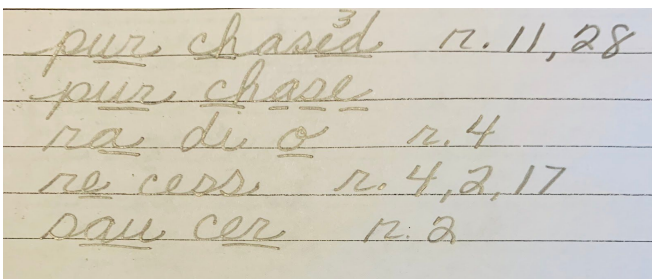 pur chased³ r. 11, 28
pur chase
ra di o r. 4
re cess r. 4, 2, 17
sau cer r. 2